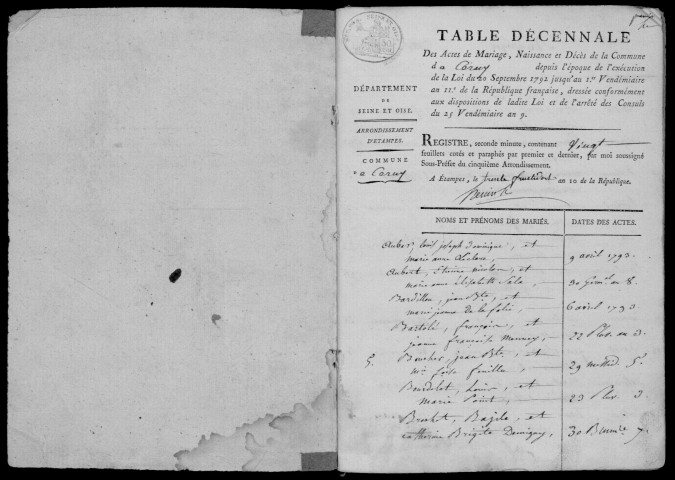 TABLE DÉCENNALE
Des Actes de Mariage, Naissance et Décès de la Commune
d e Cerny depuis l'époque de l'exécution
de la Loi du 20 Septembre 1792 jusqu'au 1.er Vendémiaire
an 11.e de la République française, dressée conformément
aux dispositions de ladite Loi et de l'arrêté des Consuls
du 25 Vendémiaire an 9.
DÉPARTEMENT
DE
SEINE ET OISE.
ARRONDISSEMENT
D'ETAMPES.
COMMUNE
de Cerny
REGISTRE, seconde minute, contenant Vingt
feuillets cotés et paraphés par premier et dernier, par moi soussigné
Sous-Préfet du cinquième Arrondissement.
A Étampes, le trente fructidor an 10 de la République.
NOMS ET PRÉNOMS DES MARIÉS. DATES DES ACTES.
Aubert, Louis joseph Dominique, et
marie anne 9 avril 1793.
Aubert, Etienne nicolas, et
marie anne Elisabeth 30 an 8.
Bardillon, jean Bte, et
marie jeanne de la folie, 6 avril 1793
Bartolé, françois, et
jeanne françoise 22 Plu. an 3.
5. Boucher, jean Bte, et
feuillu, 29 messid. 5e
Bourdelot, Louis, et
Marie Point, 23 Pluv. 3.
Brochet, Bazile, et
catherine Brigite 30 Brum.re 7.